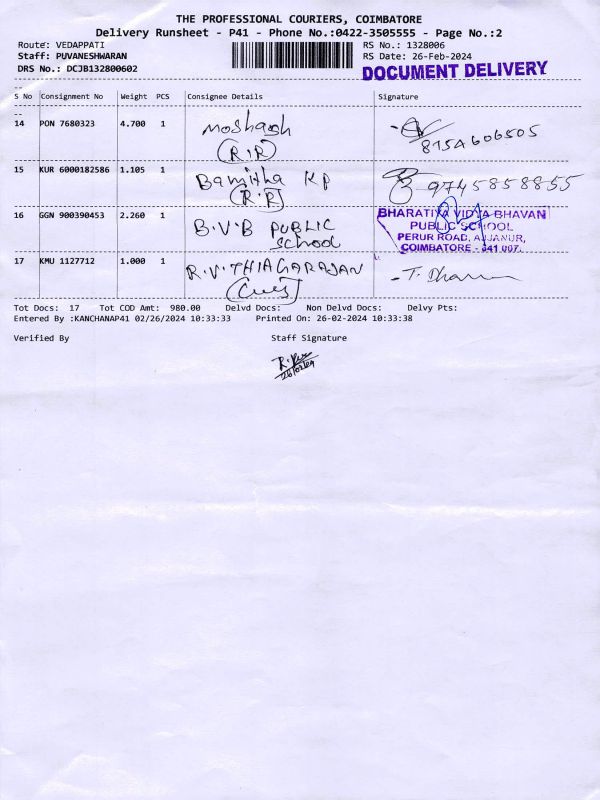 THE PROFESSIONAL COURIERS, COIMBATORE
Delivery Runsheet - P41 - Phone No.:0422-3505555 - Page No.:2
Route: VEDAPPATI RS No.: 1328006
Staff: PUVANESHWARAN RS Date: 26-Feb-2024
DRS No.: DCJB132800602 DOCUMENT DELIVERY
S No Consignment No Weight PCS Consignee Details Signature
14 PON 7680323 4.700 1
(R.R) 8754606505
15 KUR 6000182586 1.105 1 Bamitha KP
(R.R) 9745858855
16 GGN 900390453 2.260 1 B.V.B PUBLIC School
BHARATIYA VIDYA BHAVAN
PUBLIC SCHOOL
PERUR ROAD, AJJANUR,
COIMBATORE - 641 007.
17 KMU 1127712 1.000 1 R.V.THIAGARAJAN
Tot Docs: 17 Tot COD Amt: 980.00 Delvd Docs: Non Delvd Docs: Delvy Pts:
Entered By :KANCHANAP41 02/26/2024 10:33:33 Printed On: 26-02-2024 10:33:38
Verified By Staff Signature
26/02/24